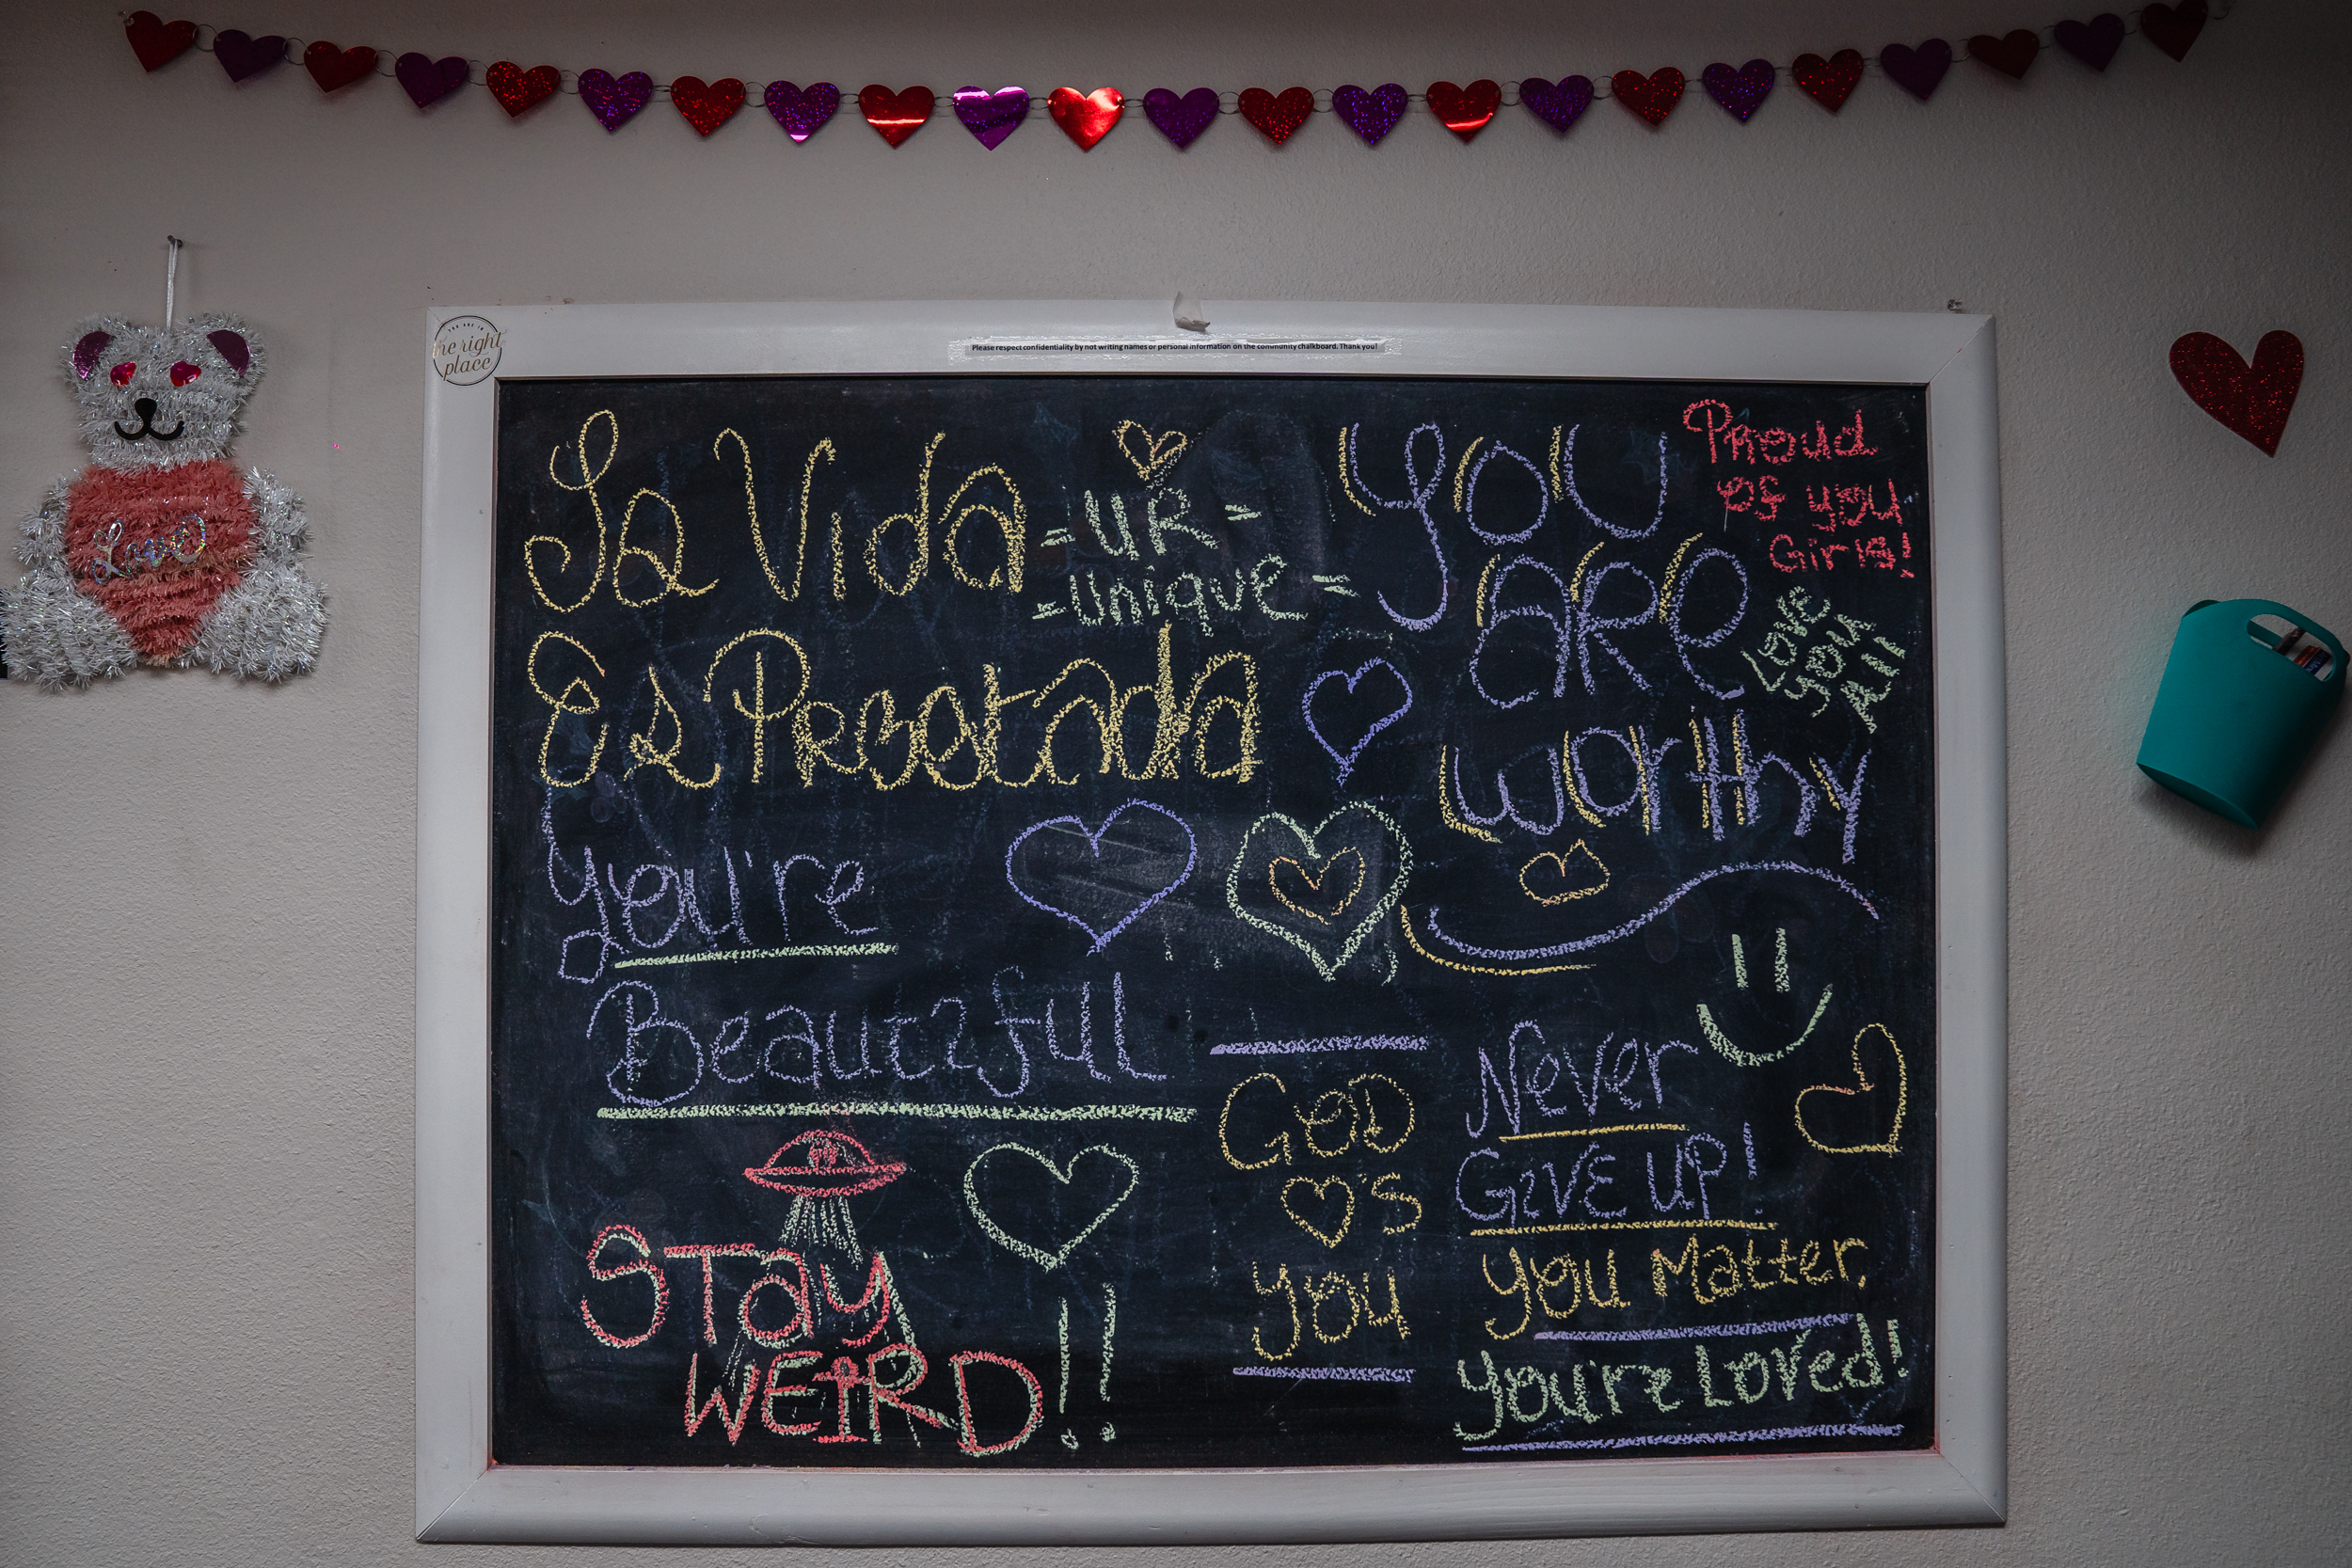 YOU ARE IN
the right
place
Please respect confidentiality by not writing names or personal information on the community chalkboard. Thank you!
Love
La Vida
Es Prestada
=UR=
=Unique=
You
are
worthy
Proud
of you
Girls!
Love
you
All
You're
Beautiful
Stay
WEiRD!!
GOD
♥'S
you
Never
GiVE UP!
You Matter,
You're Loved!